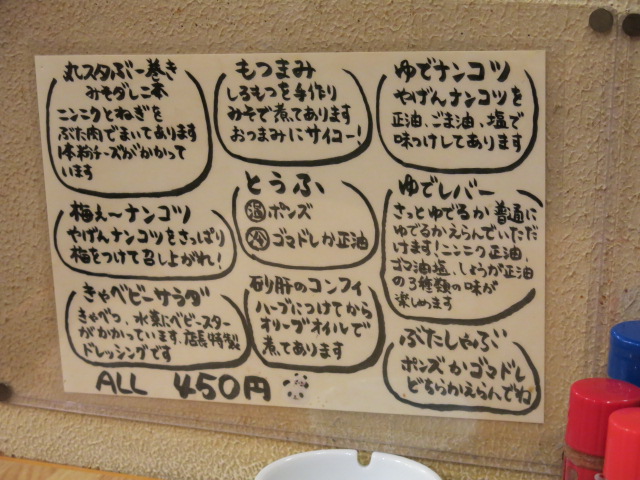 丸スタぶー巻き
みそダレ二本
ニンニクとねぎを
ぶた肉でまいてあります
1本粉チーズがかかって
います
梅ぇ〜ナンコツ
やげんナンコツをさっぱり
梅をつけて召し上がれ!
きゃベビーサラダ
きゃべつ、水菜にベビースター
がかかっています、店長特製
ドレッシングです
ALL 450円
もつまみ
しろもつを手作り
みそで煮てあります
おつまみにサイコー!
とうふ
温 ポンズ
冷 ゴマドレか正油
砂肝のコンフィ
ハーブにつけてから
オリーブオイルで
煮てあります
ゆでナンコツ
やげんナンコツを
正油、ごま油、塩で
味つけしてあります
ゆでレバー
さっとゆでるか普通に
ゆでるかえらんでいただ
けます!ニンニク正油、
ゴマ油塩、しょうが正油
の3種類の味が
楽しめます
ぶたしゃぶ
ポンズかゴマドレ
どちらかえらんでね